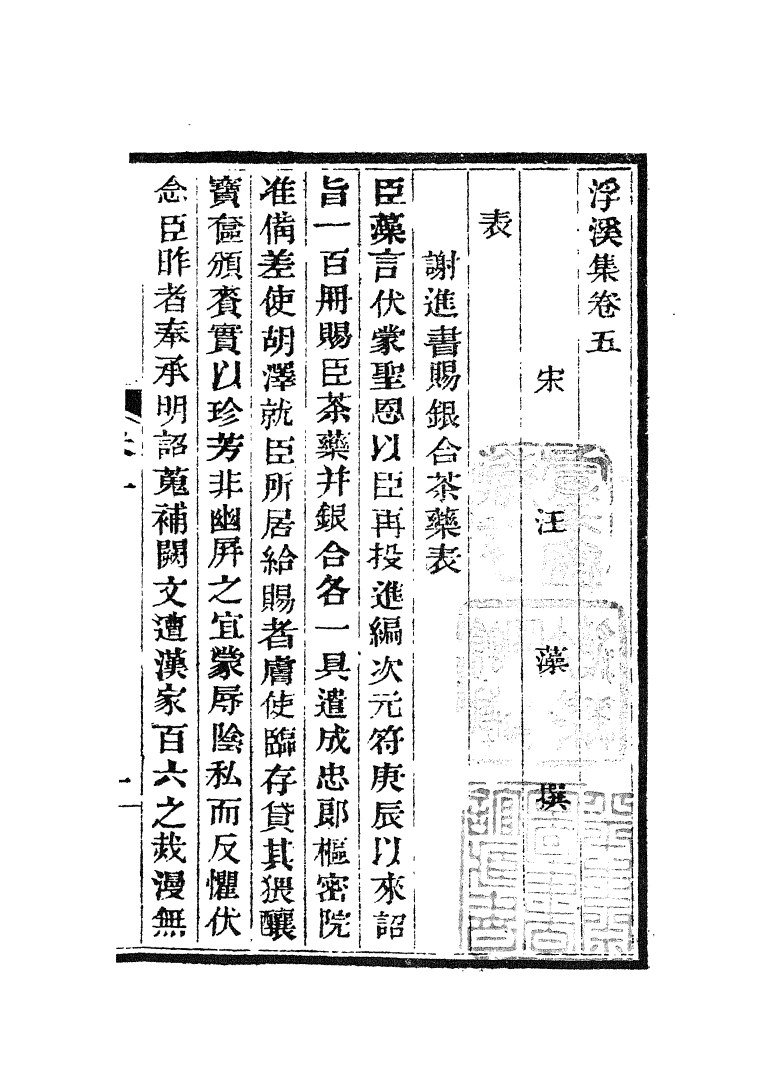 浮溪集卷五
宋 汪 藻 撰
表
謝進書賜銀合茶藥表
臣藻言伏蒙聖恩以臣再投進編次元符庚辰以來詔
旨一百冊賜臣茶藥并銀合各一具遣成忠郎樞密院
准備差使胡澤就臣所居給賜者膚使臨存貸其猥釀
寶奩頒賚實以珍芳非幽屏之宜蒙辱隂私而反懼伏
念臣昨者奉承明詔蒐補闕文遭漢家百六之烖漫無